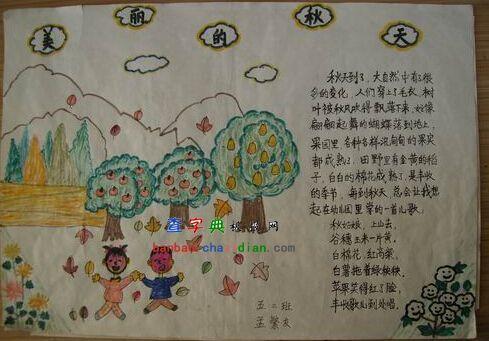 美丽的秋天
秋天到了，大自然中有了很
多的变化，人们穿上了毛衣，树
叶被秋风吹得飘落下来，好像
翩翩起舞的蝴蝶落到地上，
果园里各种各样沉甸甸的果实
都成熟了，田野里有金黄的稻
子，白白的棉花成熟了，是丰收
的季节，每到秋天，总会让我想
起在幼儿园里学的一首儿歌。
秋姑娘，上山去，
谷穗玉米一片黄，
白棉花，红高粱，
白薯拖着绿秧秧，
苹果笑得红了脸，
丰收歌儿到处唱。
五二班
孟繁友
查字典模板网
banban.chazidian.com